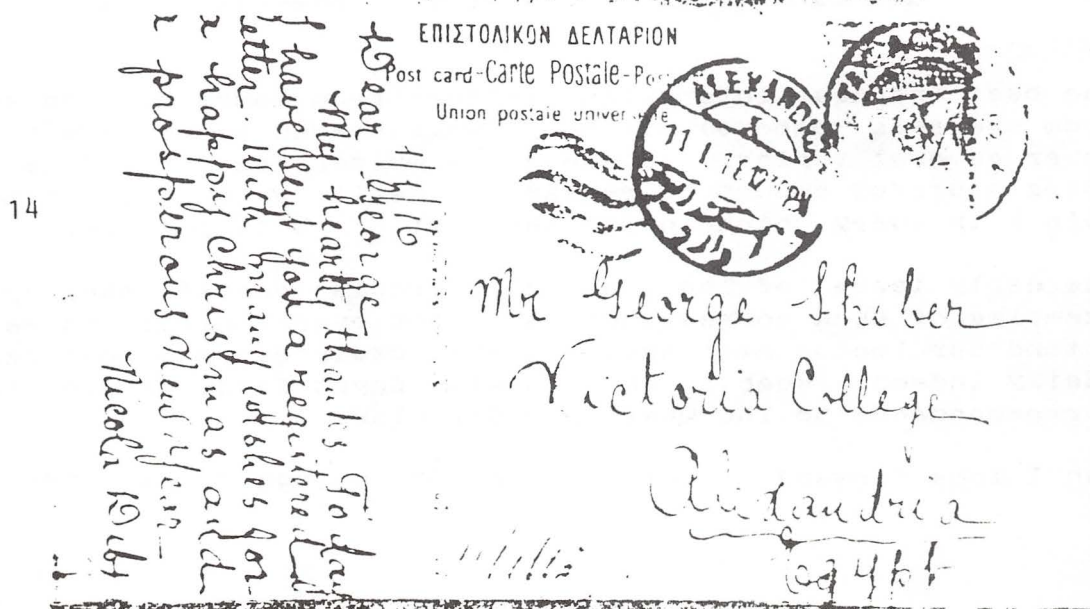 ΕΠΙΣΤΟΛΙΚΟΝ ΔΕΛΤΑΡΙΟΝ
Post card-Carte Postale-Po
Union postale univer
ALEXAND
14
1/1/16
Dear George
My hearty thanks. To day
I have sent you a registered
letter. With many wishes for
a happy Christmas and
a prosperous New Year
Nicola
Mr George
Victoria College
Alexandria
Egypt